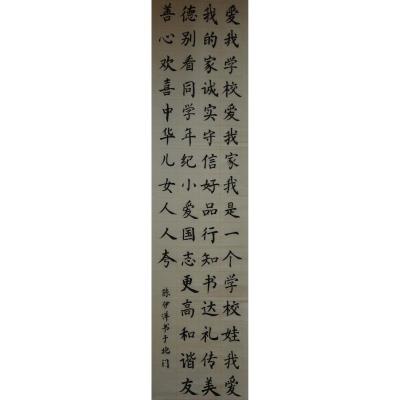 爱我学校爱我家我是一个学校娃我爱
我的家诚实守信好品行知书达礼传美
德别看同学年纪小爱国志更高和谐友
善心欢喜中华儿女人人夸
陈伊洋书于北门